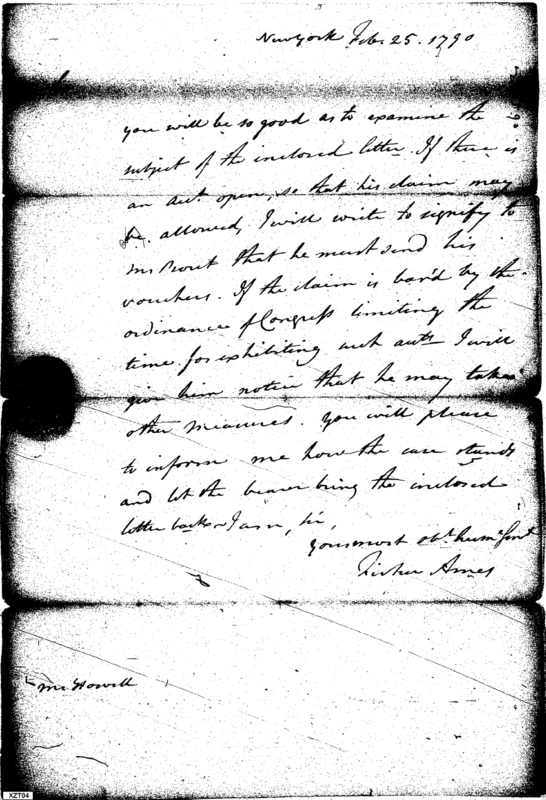 New York Feb. 25. 1790
you will be so good as to examine the
subject of the inclosed letter. If there is
an acct. open, so that his claim may
be allowed, I will write to signify to
Mr Prout that he must send his
vouchers. If the claim is bar'd by the
ordinance of Congress limiting the
time for exhibiting such accts I will
give him notice that he may take
other measures. you will please
to inform me how the case stands
and let the bearer bring the inclosed
letter back. I am, Sir,
your most obt. humle Servt
Fisher Ames
Mr Howell
XZT04